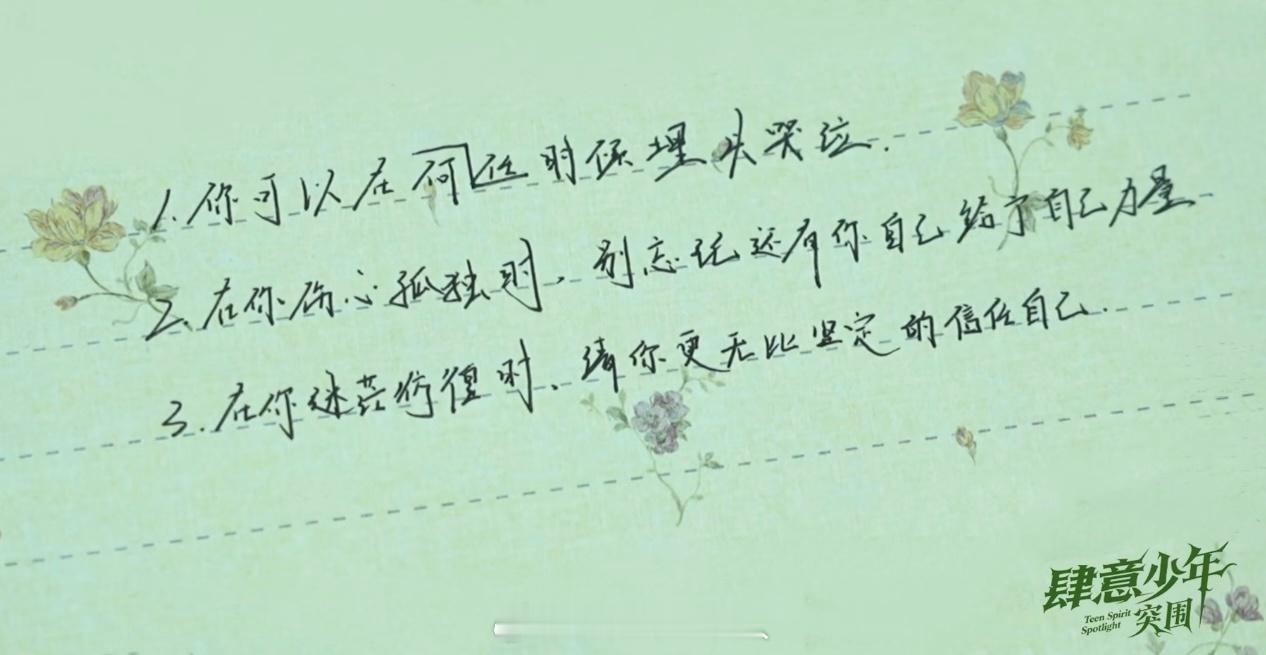 1.你可以在何任时候埋头哭泣.
2.在你伤心孤独时、别忘记还有你自己给了自己力量
3.在你迷茫彷徨时、请你更无比坚定的信任自己.
肆意少年
Teen Spirit
Spotlight
突围